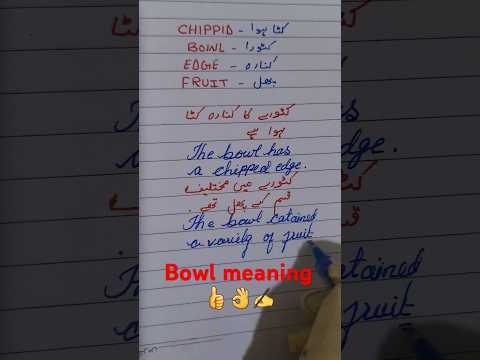 CHIPPID - کٹا ہوا
BOWL - کٹورا
EDGE - کنارہ
FRUIT - پھل
کٹورے کا کنارہ کٹا
ہوا ہے
The bowl has
a chipped edge.
کٹورے میں مختلیف
قسم کے پھل تھے .
The bowl catained
a variety of fruit
Bowl meaning
👍👌✍️